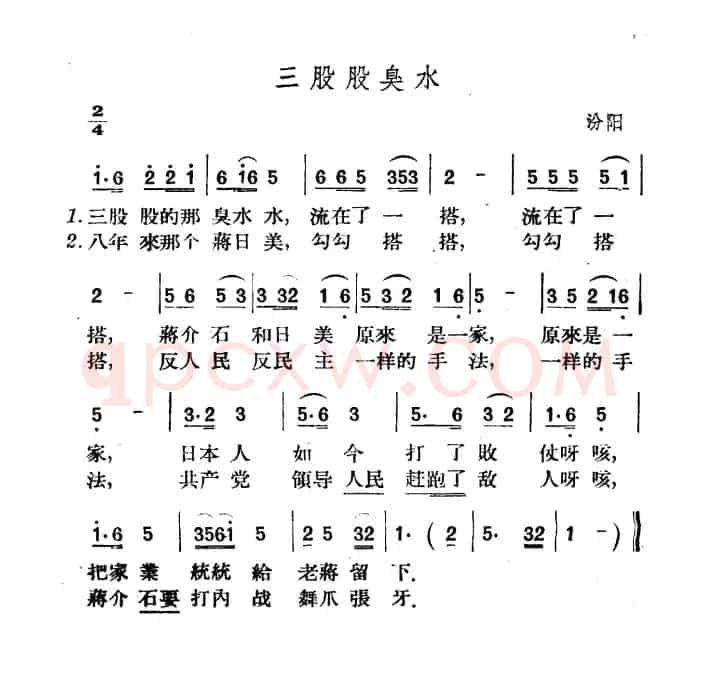 三股股臭水
2/4
汾阳
1·6 2 2 1 | 6 16 5 | 6 6 5 353 | 2 - | 5 5 5 5 1 |
1. 三股 股的那 臭水 水, 流在了 一 搭, 流在了 一
2. 八年 來那个 蔣日 美, 勾勾 搭 搭, 勾勾 搭
2 - | 5 6 5 3 | 3 32 1 6 | 5 3 2 1 6 | 5 - | 3 5 2 16 |
搭, 蔣介 石 和日 美 原來 是一 家, 原來是 一
搭, 反人 民 反民 主 一样的 手 法, 一样的 手
qpcxw.com
5 - | 3·2 3 | 5·6 3 | 5· 6 32 | 1·6 5 |
家, 日本 人 如 今 打 了 敗 仗呀 咳,
法, 共产 党 領导 人民 赶跑了 敌 人呀 咳,
1·6 5 | 3561 5 | 2 5 32 | 1· ( 2 | 5· 32 | 1 - ‖
把家 業 統統 給 老蔣 留 下.
蔣介 石要 打內 战 舞爪 張 牙.